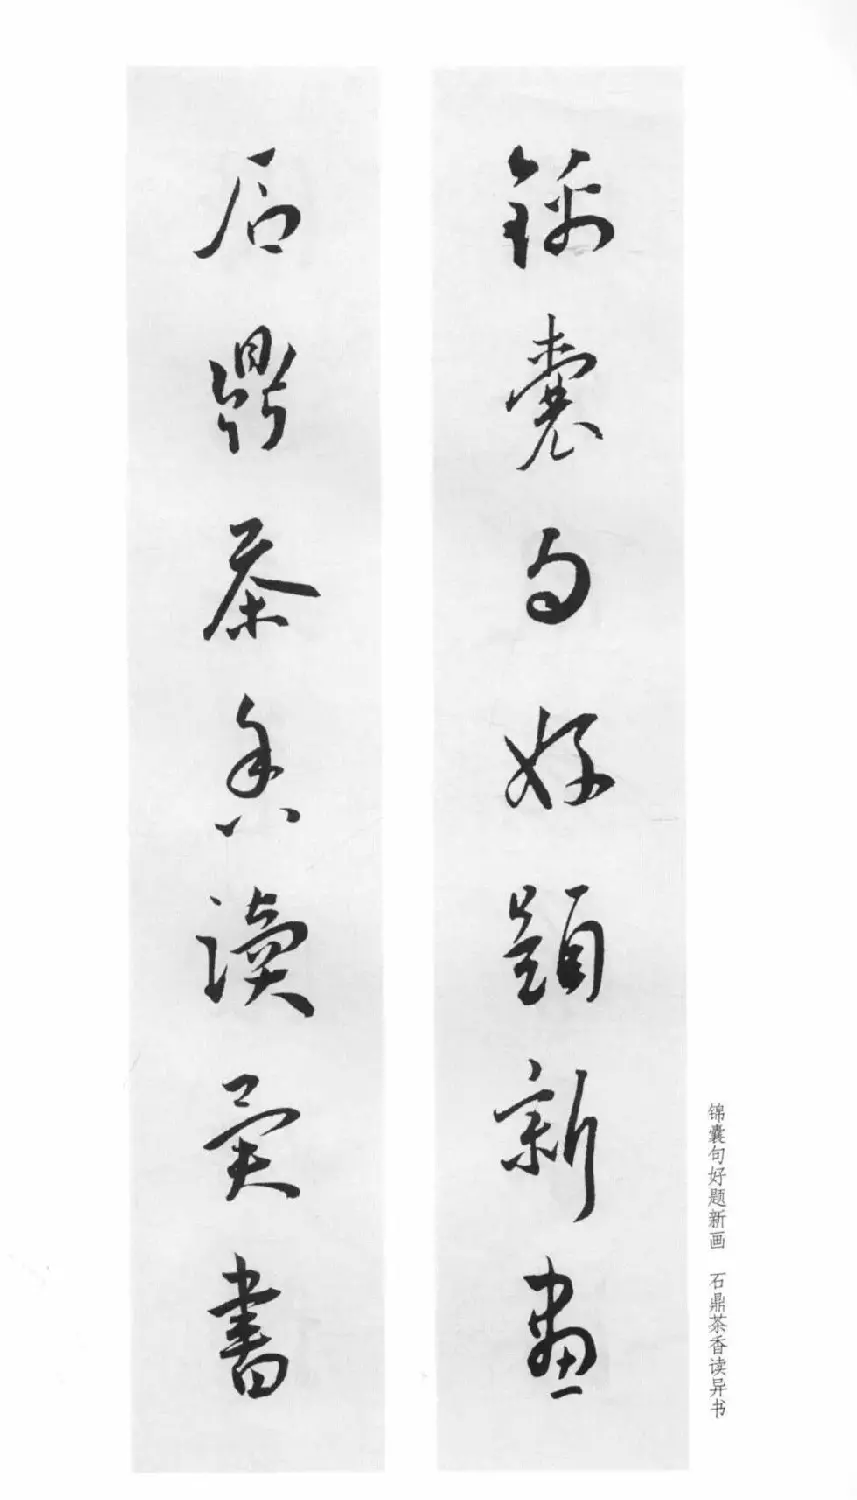 錦囊句好題新畫
石鼎茶香讀異書
锦囊句好题新画 石鼎茶香读异书